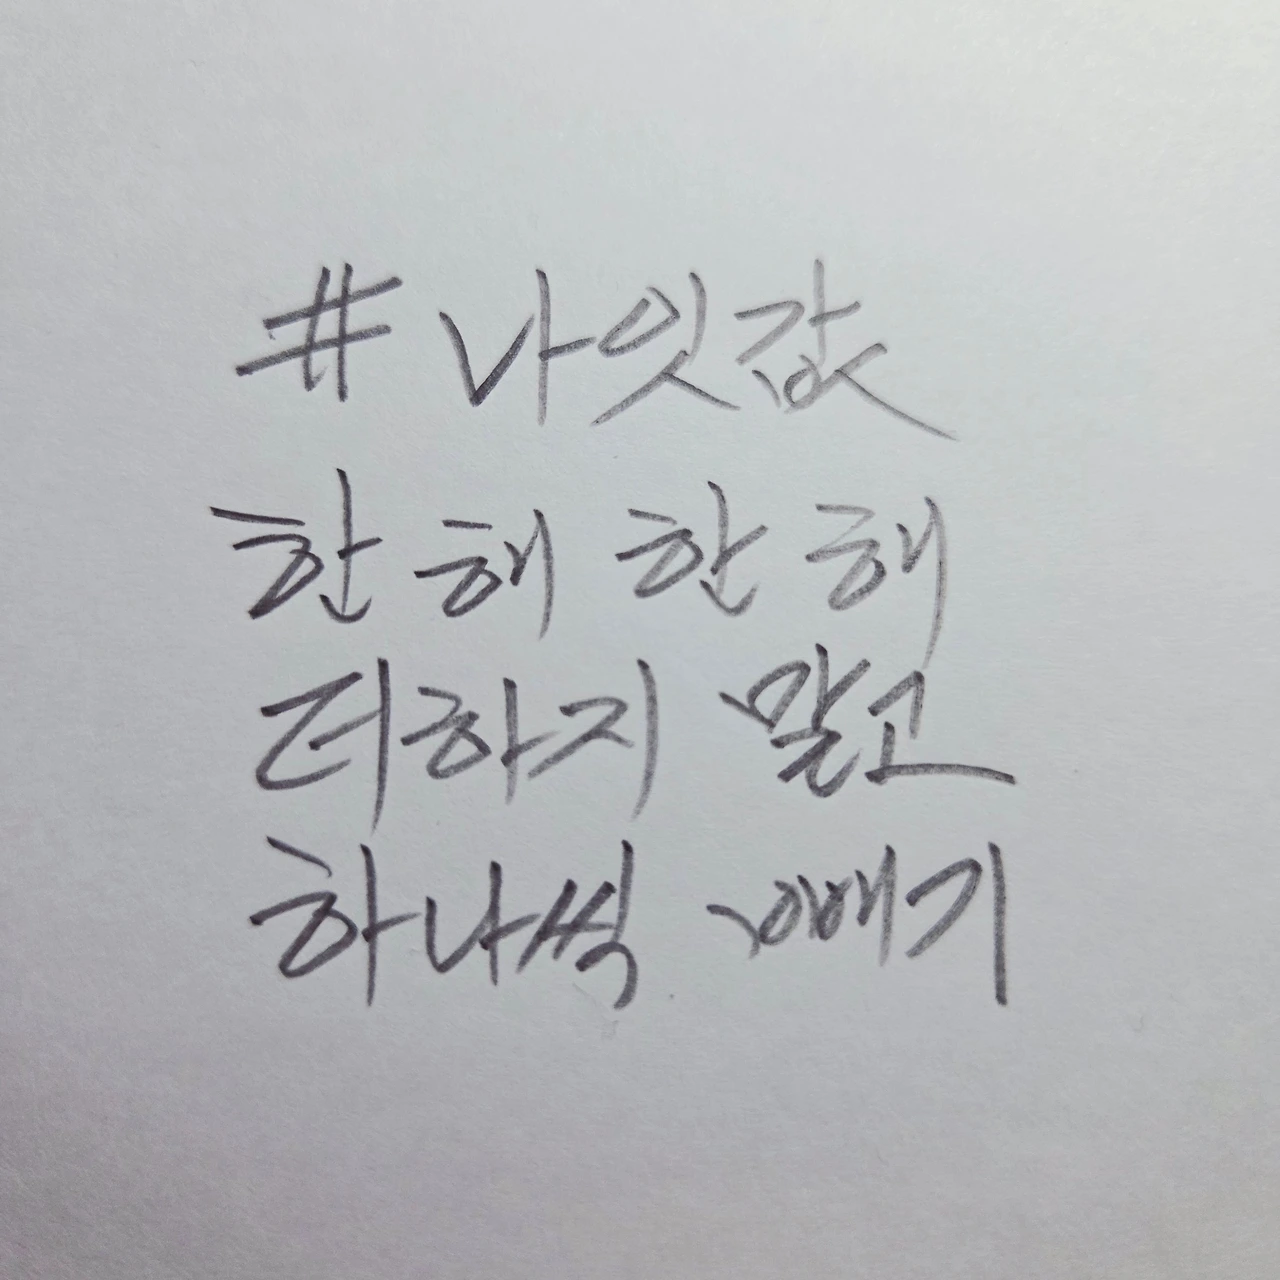 # 나잇값
한 해 한 해
더하지 말고
하나씩 빼기